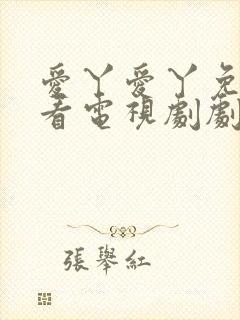 愛丫愛丫免
看電視劇劇
張舉紅